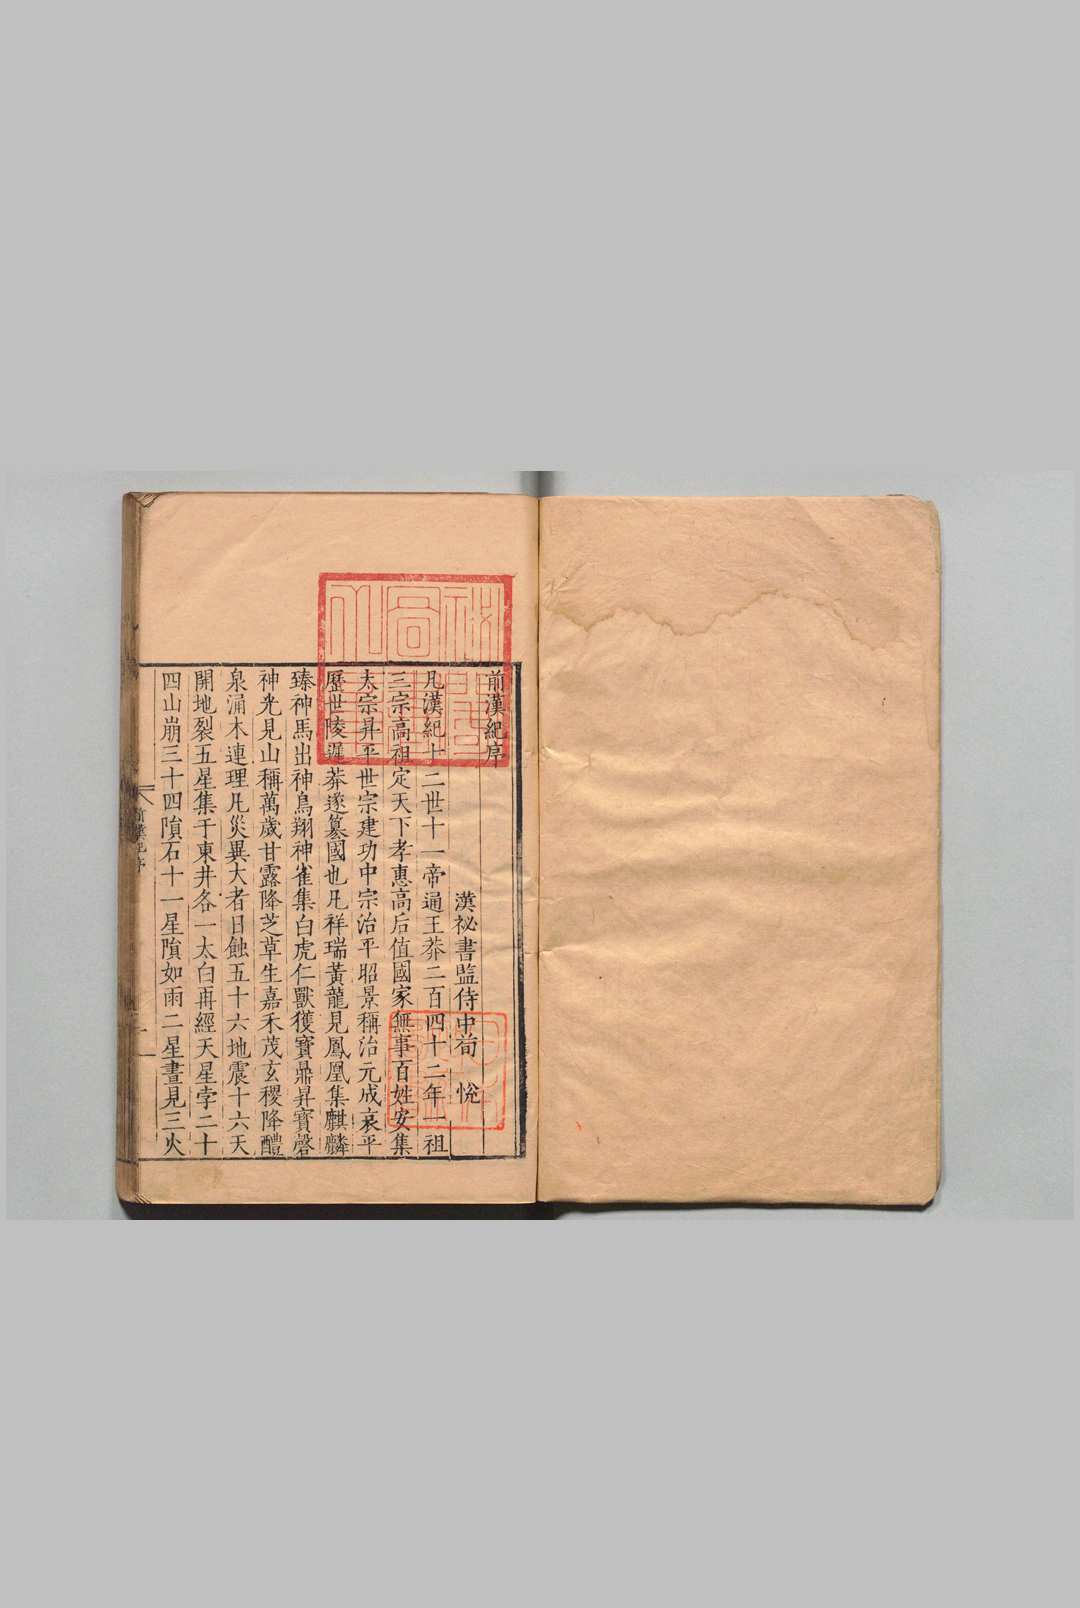 前漢紀序
漢祕書監侍中荀悅
凡漢紀十二世十一帝通王莽二百四十二年一祖
三宗高祖定天下孝惠高后值國家無事百姓安集
太宗昇平世宗建功中宗治平昭景稱治元成哀平
歷世陵遲莽遂篡國也凡祥瑞黃龍見鳳凰集麒麟
臻神馬出神鳥翔神雀集白虎仁獸獲寶鼎昇寶磬
神光見山稱萬歲甘露降芝草生嘉禾茂玄稷降醴
泉涌木連理凡災異大者日蝕五十六地震十六天
開地裂五星集于東井各一太白再經天星孛二十
四山崩三十四隕石十一星隕如雨二星晝見三火
前漢紀序